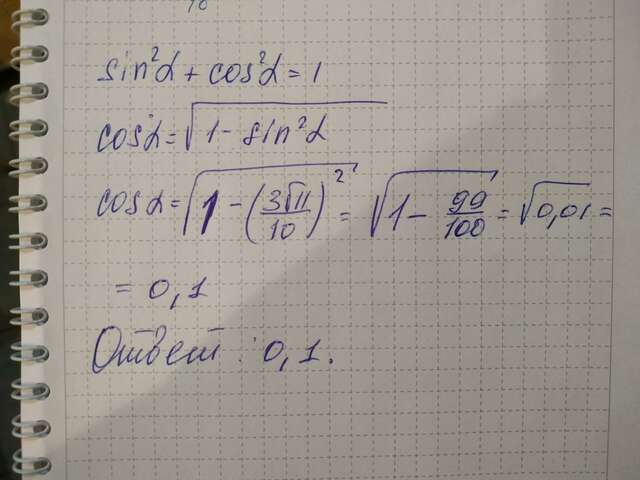 sin²α + cos²α = 1
cosα = √(1 - sin²α)
cosα = √(1 - (3√11/10)²) = √(1 - 99/100) = √0,01 =
= 0,1
Ответ: 0,1.